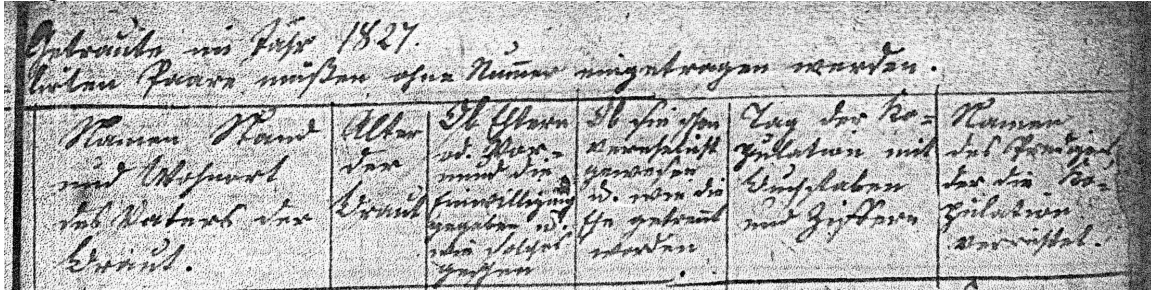 Getraute im Jahr 1827.
lirten Paare müßen ohne Numer eingetragen werden.
Namen Stand
und Wohnort
des Vaters der
Braut.
Alter
der
Braut
Ob Eltern
od. Vor-
mund die
Einwilligung
gegeben u.
wie solches
geschehen
Ob sie schon
verehelicht
gewesen
u. wie die
Ehe getrennt
worden
Tag der Ko-
pulation mit
Buchstaben
und Ziffern
Namen
des Predigers,
der die Ko-
pulation
verrichtet.